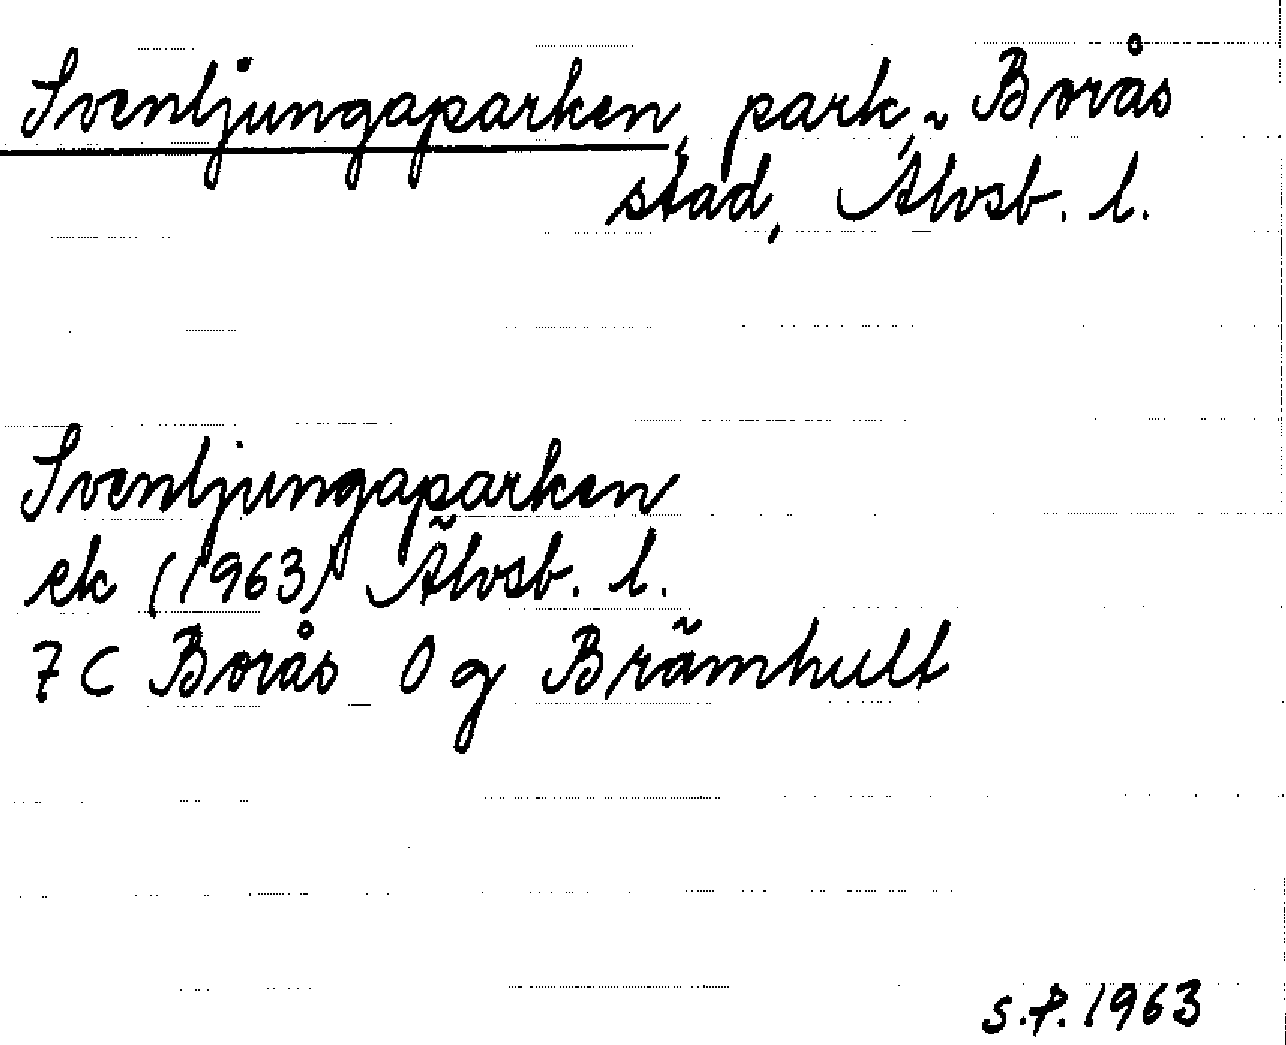 Svenljungaparken, park, Borås
stad, Älvsb. l.
Svenljungaparken
ek (1963) Älvsb. l.
7 C Borås O g Brämhult
s.P. 1963